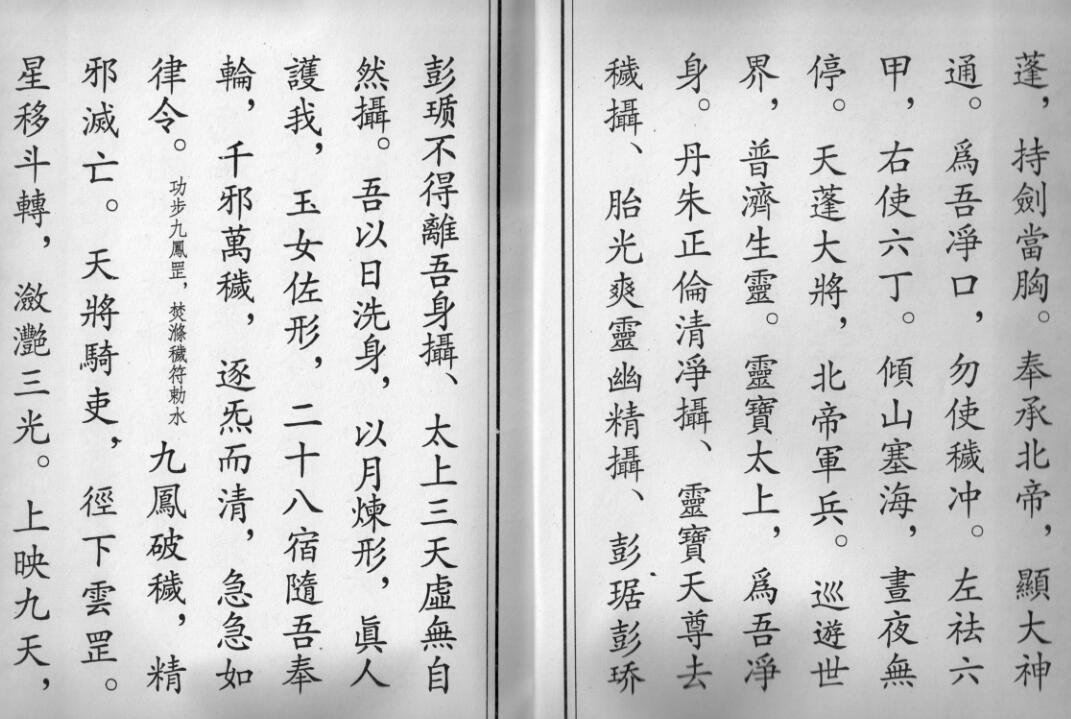 蓬，持劍當胸。奉承北帝，顯大神
通。爲吾凈口，勿使穢冲。左祛六
甲，右使六丁。傾山塞海，晝夜無
停。天蓬大將，北帝軍兵。巡遊世
界，普濟生靈。靈寶太上，爲吾凈
身。丹朱正倫清凈攝、靈寶天尊去
穢攝、胎光爽靈幽精攝、彭琚彭琦
彭瓆不得離吾身攝、太上三天虛無自
然攝。吾以日洗身，以月煉形，眞人
護我，玉女佐形，二十八宿隨吾奉
輪，千邪萬穢，逐炁而清，急急如
律令。功步九鳳罡，焚滌穢符勅水九鳳破穢，精
邪滅亡。天將騎吏，徑下雲罡。
星移斗轉，瀲灩三光。上映九天，